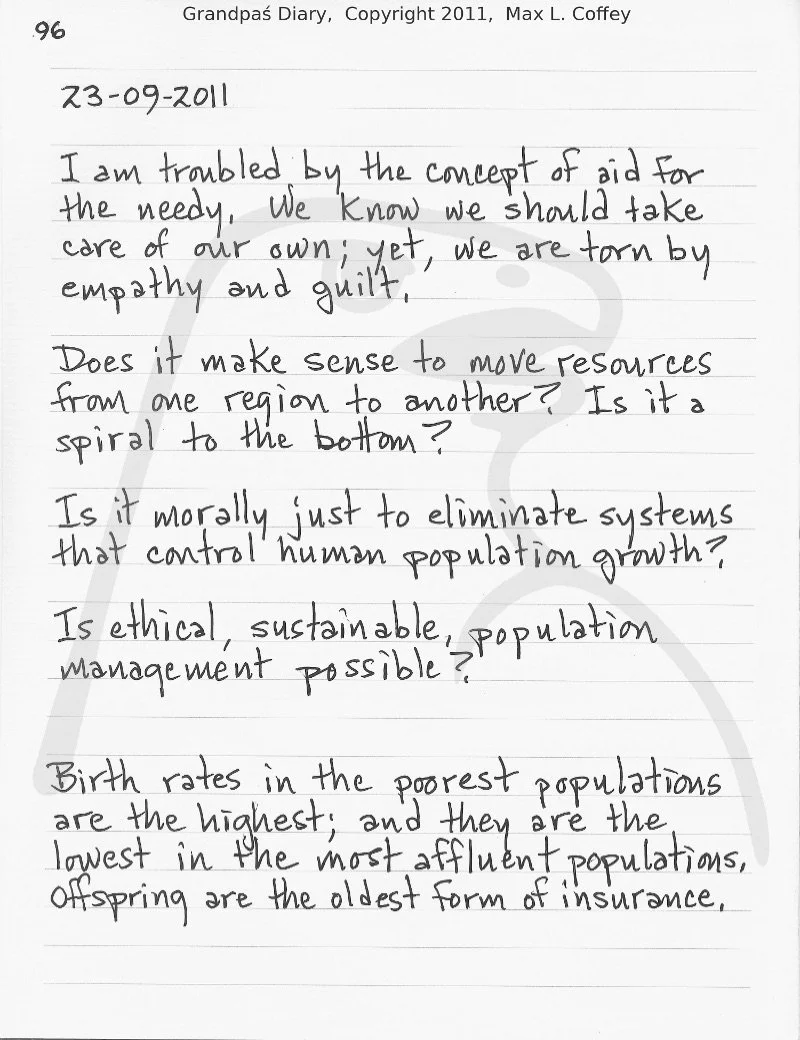 Grandpaś Diary, Copyright 2011, Max L. Coffey
96
23-09-2011
I am troubled by the concept of aid for
the needy. We know we should take
care of our own; yet, we are torn by
empathy and guilt.
Does it make sense to move resources
from one region to another? Is it a
spiral to the bottom?
Is it morally just to eliminate systems
that control human population growth?
Is ethical, sustainable, population
management possible?
Birth rates in the poorest populations
are the highest; and they are the
lowest in the most affluent populations.
Offspring are the oldest form of insurance.